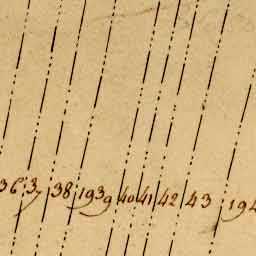 36 37 38 1939 40 41 42 43 194